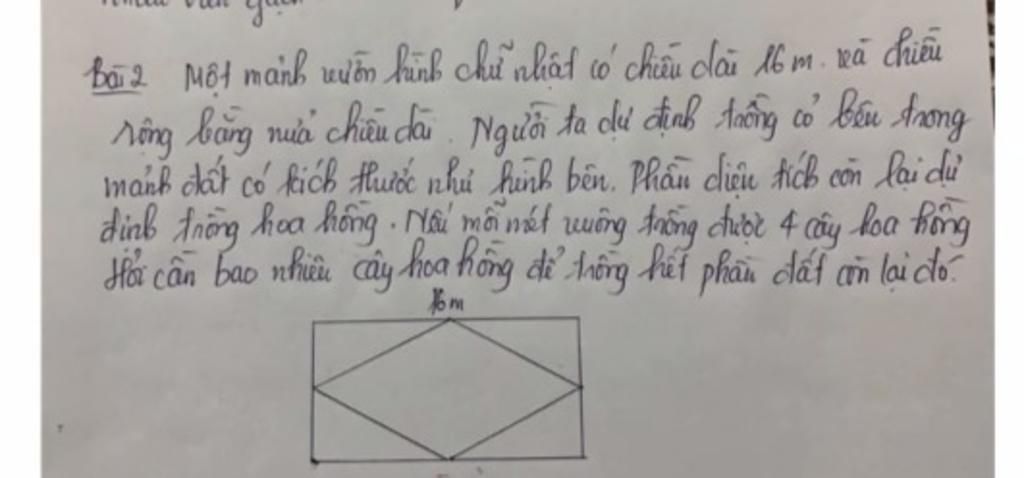 Bài 2 Một mảnh vườn hình chữ nhật có chiều dài 16m và chiều
rộng bằng nửa chiều dài. Người ta dự định trồng cỏ bên trong
mảnh đất có kích thước như hình bên. Phần diện tích còn lại dự
định trồng hoa hồng. Nếu mỗi mét vuông trồng được 4 cây hoa hồng
Hỏi cần bao nhiêu cây hoa hồng để trồng hết phần đất còn lại đó.
16m